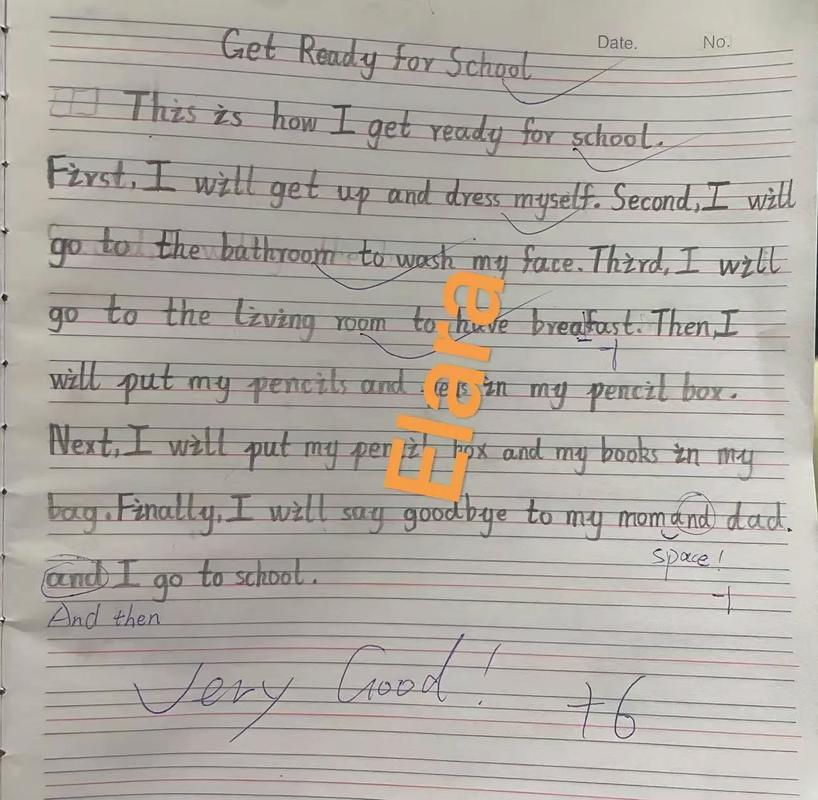 Date. No.
Get Ready for School
This is how I get ready for school.
First, I will get up and dress myself. Second, I will
go to the bathroom to wash my face. Third, I will
go to the living room to have breafast. Then, I
-1
will put my pencils and in my pencil box.
Next, I will put my pencil box and my books in my
bag. Finally, I will say goodbye to my momand dad.
space!
and I go to school.
-1
And then
Very Good! +6
Elara